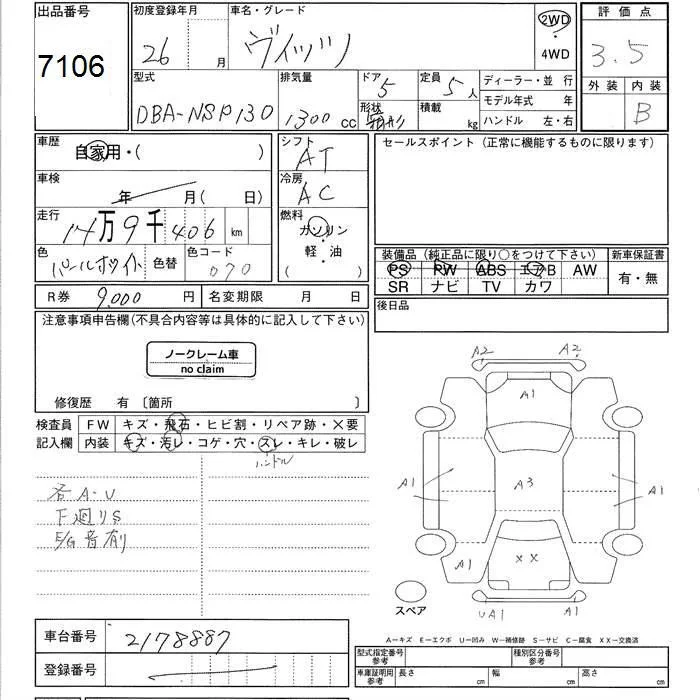 出品番号
7106
初度登録年月
26 月
車名・グレード
ヴィッツ
2WD
4WD
評価点
3.5
外装 内装
B
型式
DBA-NSP130
排気量
1300 cc
ドア
5
形状
箱形
定員
5人
積載
kg
ディーラー・並 行
モデル年式 年
ハンドル 左・右
車歴
自家用・( )
車検
年 月( 日)
走行
14万9千406 km
色
パールホワイト
色替
色コード
070
シフト
AT
冷房
AC
燃料
ガソリン
軽・油
( )
セールスポイント (正常に機能するものに限ります)
装備品 (純正品に限り○をつけて下さい)
PS PW ABS エアB AW
SR ナビ TV カワ
新車保証書
有・無
R券 9,000 円
名変期限 月 日
後日品
注意事項申告欄(不具合内容等は具体的に記入して下さい)
ノークレーム車
no claim
修復歴 有 〔箇所 〕
検査員
記入欄
FW キズ・飛石・ヒビ割・リペア跡・×要
内装 キズ・汚レ・コゲ・穴・スレ・キレ・破レ
ハンドル
各A・U
下廻りS
E/G音有
A2 A2
A1
A1 A3 A1
XX
A1
UA1 A1
スペア
A―キズ E―エクボ U―凹み W―補修跡 S―サビ C―腐食 XX―交換済
車台番号
2178887
登録番号
型式指定番号
参考
種別区分番号
参考
車庫証明用
参考
長さ cm
幅 cm
高さ cm